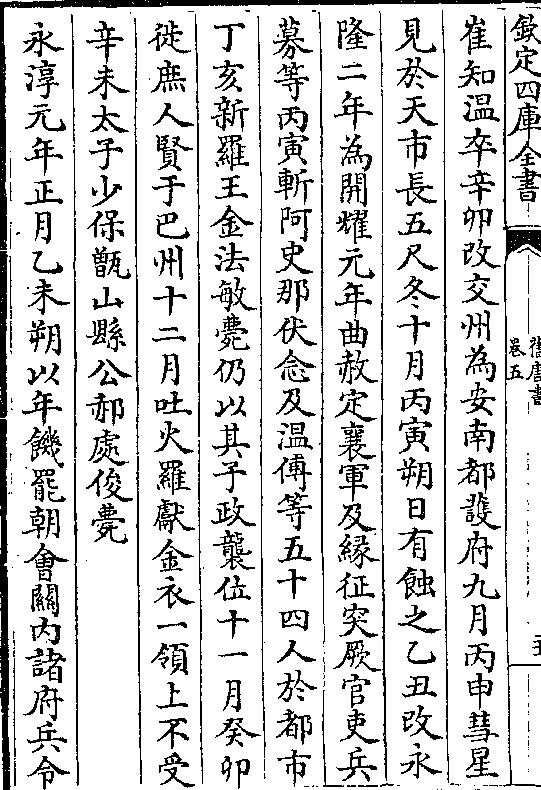 欽定四庫全書
舊唐書
卷五
崔知溫卒辛卯改交州為安南都護府九月丙申彗星
見於天市長五尺冬十月丙寅朔日有蝕之乙丑改永
隆二年為開耀元年曲赦定襄軍及緣征突厥官吏兵
募等丙寅斬阿史那伏念及溫傅等五十四人於都市
丁亥新羅王金法敏薨仍以其子政襲位十一月癸卯
徙庶人賢于巴州十二月吐火羅獻金衣一領上不受
辛未太子少保甑山縣公郝處俊薨
永淳元年正月乙未朔以年饑罷朝會關內諸府兵令